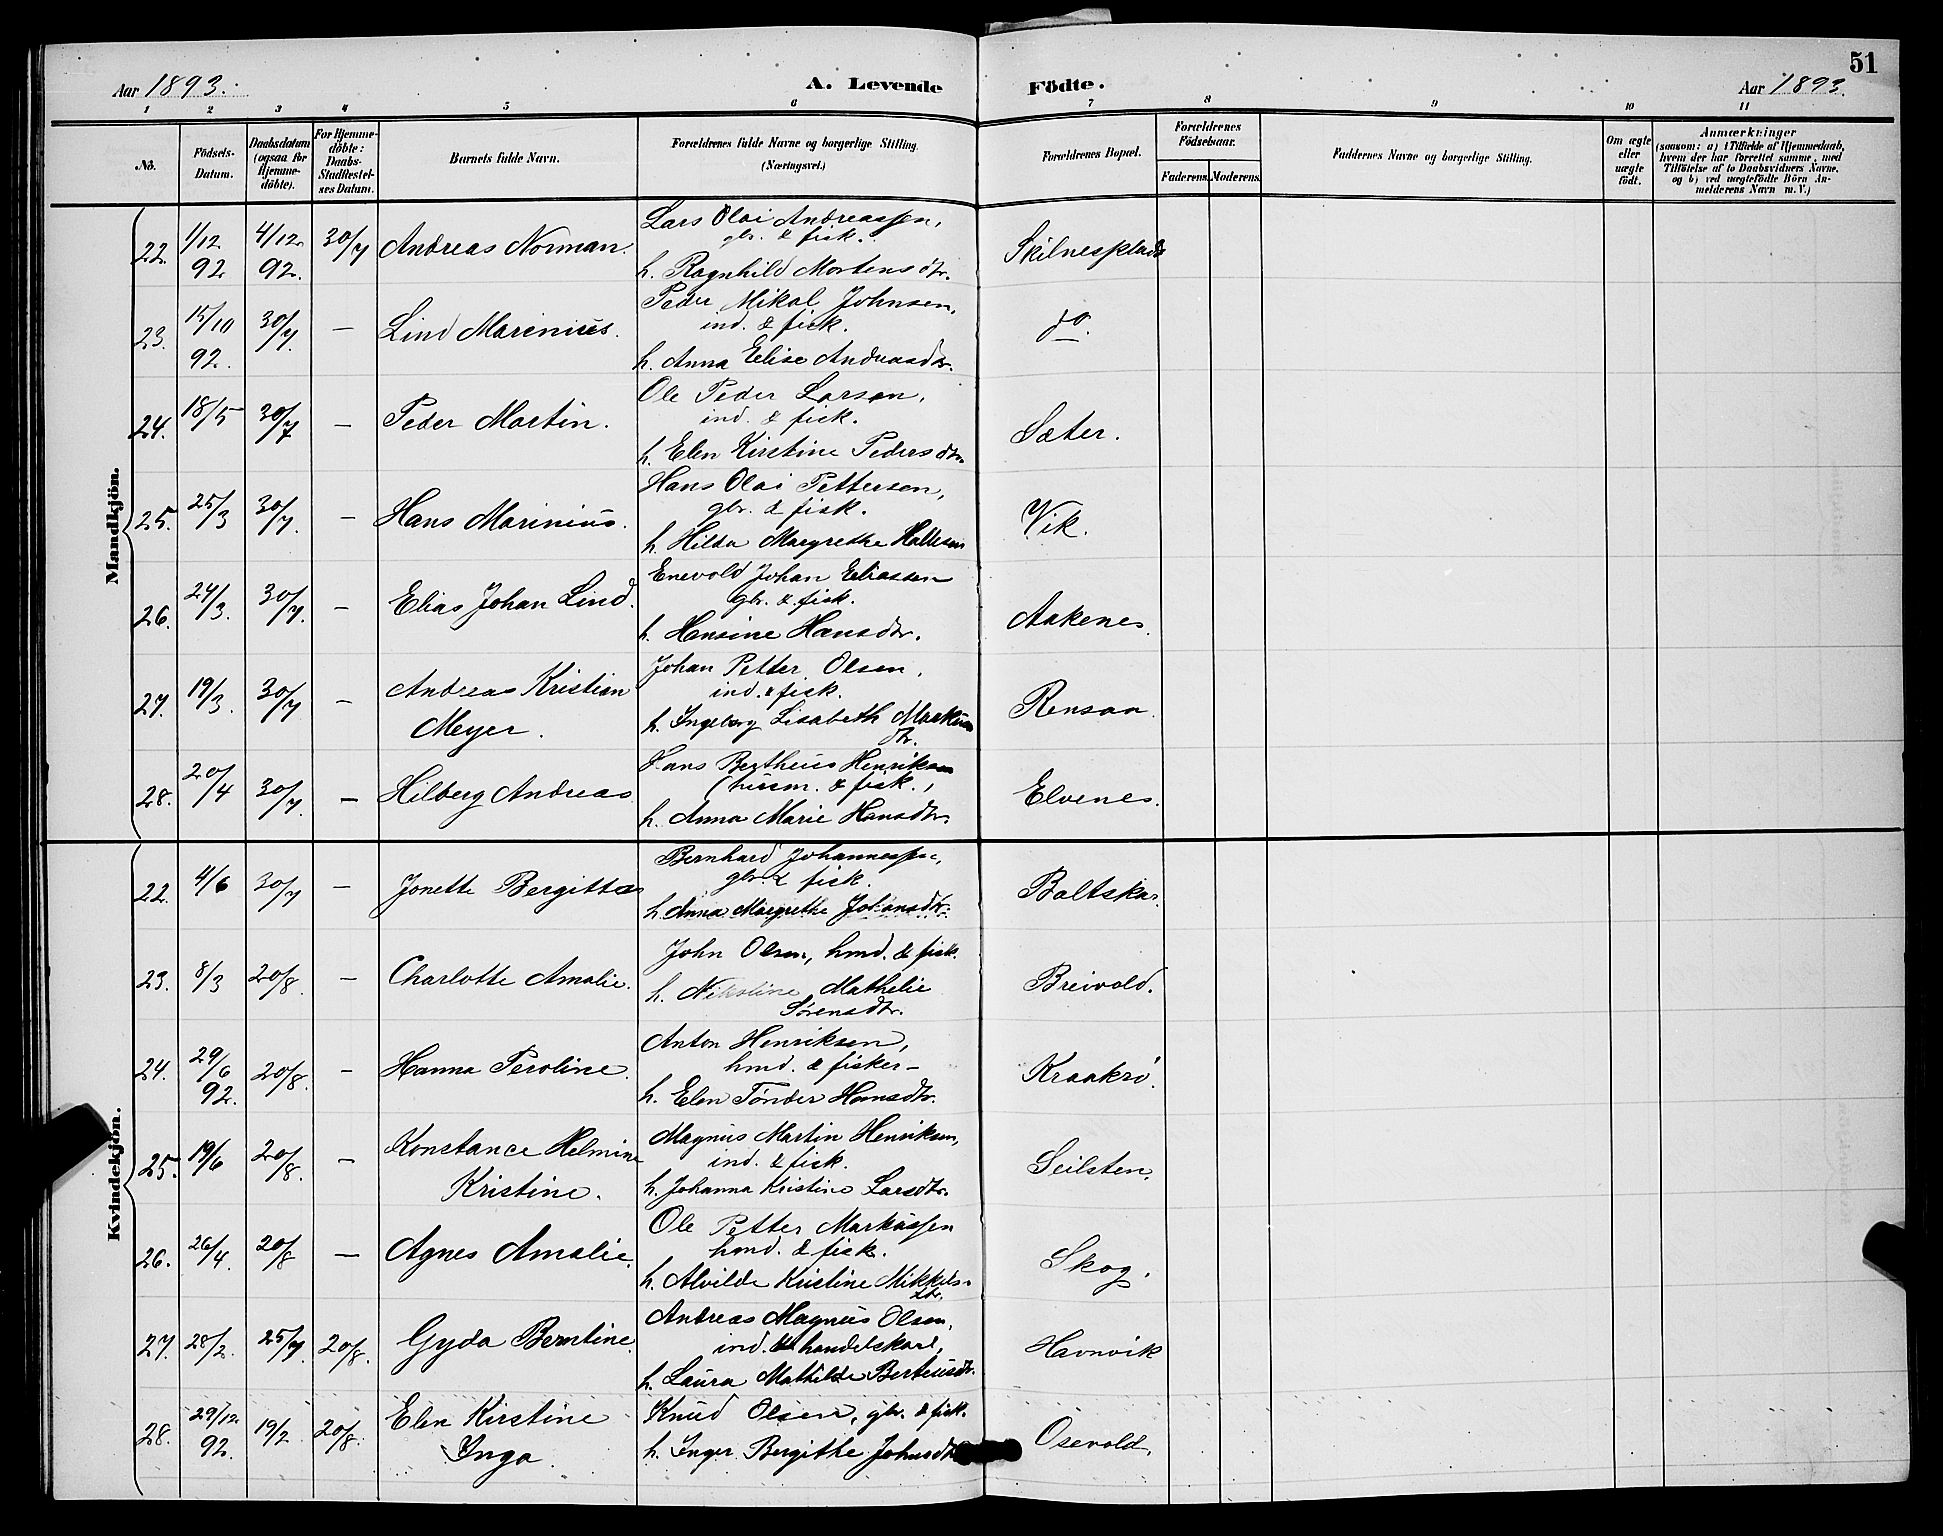 51
Aar 1893.
A. Levende Födte.
Aar 1893.
1 2 3 4 5 6 7 8 9 10 11
No.
Födsels-Datum.
Daabsdatum (ogsaa for Hjemme-döbte).
For Hjemme-döbte: Daabs-Stadfæstel-ses Datum.
Barnets fulde Navn.
Forældrenes fulde Navne og borgerlige Stilling. (Næringsvei.)
Forældrenes Bopæl.
Forældrenes Födselsaar.
Faderens. Moderens.
Faddernes Navne og borgerlige Stilling.
Om ægte eller uægte födt.
Anmærkninger
(saasom: a) i Tilfælde af Hjemmedaab,
hvem der har forrettet samme, med
Tilföielse af to Daabsvidners Navne,
og b) ved uægtefödte Börn An-
melderens Navn m. V.)
Mandkjön.
22. 1/12 92 4/12 92. 30/7 Andreas Norman. Lars Olai Andreassen,
gbr. & fisk.
h. Ragnhild Mortensdtr. Skilnesplads
23. 15/10 92. 30/7. — Lind Marinius. Peder Mikal Johnsen,
ind. & fisk.
h. Anna Elise Andreasdtr. do.
24. 18/5 30/7 — Peder Martin. Ole Peder Larsen,
ind. & fisk.
h. Elen Kirstine Pedersdtr. Sæter.
25. 25/3 30/7. — Hans Marinius. Hans Olai Pettersen,
gbr. & fisk.
h. Hilda Margrethe Vik.
26. 24/3. 30/7. — Elias Johan Lind. Enevold Johan Eliassen
gbr. & fisk.
h. Hansine Hansdtr. Aakenes.
27. 19/3. 30/7 — Andreas Kristian
Meyer. Johan Petter Olsen,
ind. & fisk.
h. Ingeborg Lisabeth Markus
dtr. Rensaa.
28. 20/4 30/7. — Hilberg Andreas Hans Bertheus Henriksen
(husm. & fisk.,
h. Anna Marie Hansdtr. Elvenes.
Kvindekjön.
22. 4/6 30/7 — Jonette Bergitta Bernhard Johannessen,
gbr. & fisk.
h. Anna Margrethe Johansdtr. Boltskar.
23. 8/3 20/8. — Charlotte Amalie. John Olsen, hmd. & fisk.
h. Nikoline Mathelie
Sørensdtr. Breivold.
24. 29/6 92. 20/8. — Hanna Peroline. Anton Henriksen,
hmd. & fisker —
h. Elen Tønder Hansdtr. Kraakrö.
25. 19/6 20/8. — Konstance Helmine
Kristine. Magnus Martin Henriksen,
ind. & fisk.
h. Johanna Kristine Larsdtr. Seilsten.
26. 26/4. 20/8 — Agnes Amalie. Ole Petter Markussen
hmd. & fisk.
h. Alvilde Kristine Mikkels-
dtr. Skog.
27. 28/2. 25/7. 20/8. Gyda Berntine. Andreas Magnus Olsen,
ind. & handelskarl,
h. Laura Mathilde Berteusdtr. Havnvik
28. 29/12 92. 19/2. 20/8. Elen Kirstine
Inga. Knud Olsen, gbr. & fisk.
h. Inger Bergithe Johnsdtr. Osevold.